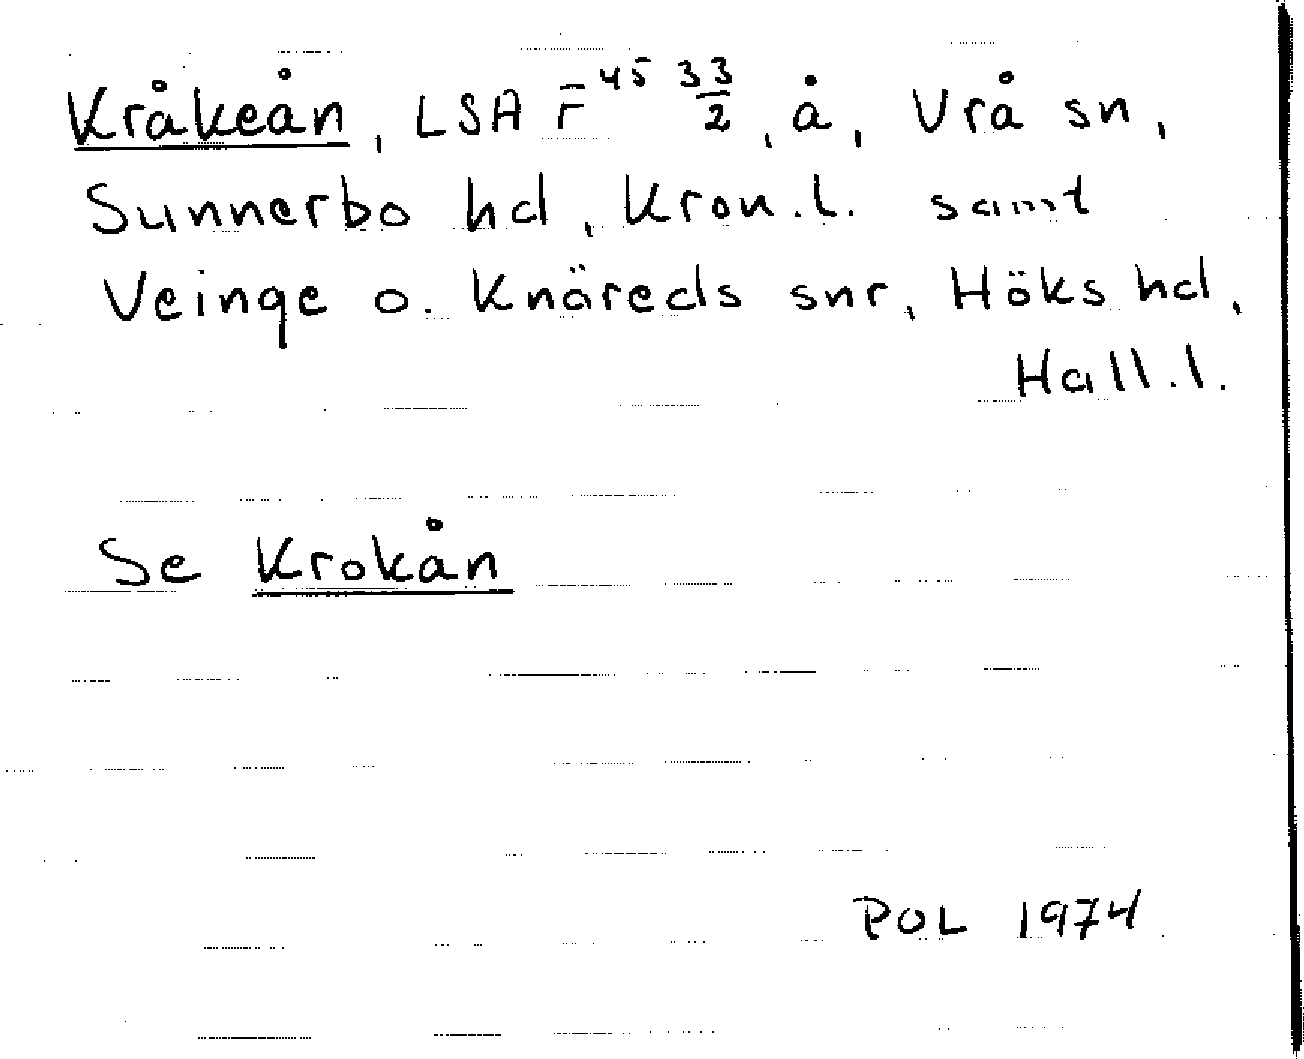 Kråkeån, LSA F⁴⁵ 33/2, å, Vrå sn,
Sunnerbo hd, Kron.l. samt
Veinge o. Knäreds snr, Höks hd,
Hall.l.
Se Krokån
POL 1974